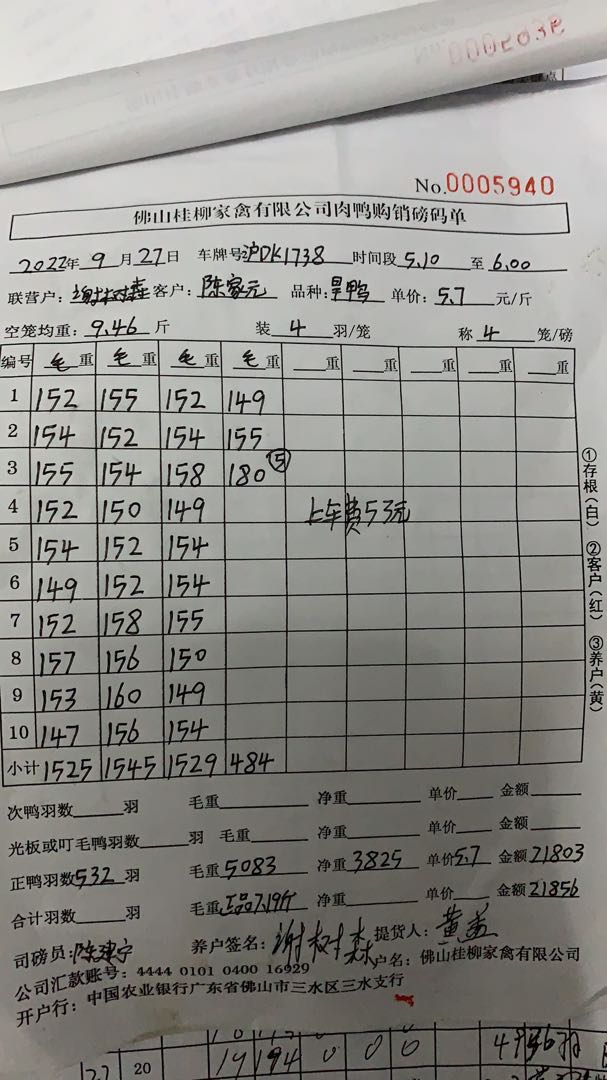 0005936
No.0005940
佛山桂柳家禽有限公司肉鸭购销磅码单
2022年 9 月 27 日 车牌号 沪DK1738 时间段 5.10 至 6.00
联营户: 谢树森 客户: 陈家元 品种: 旱鸭 单价: 5.7 元/斤
空笼均重: 9.46 斤 装 4 羽/笼 称 4 笼/磅
编号 毛重 毛重 毛重 毛重 重 重 重 重 重
1 152 155 152 149
2 154 152 154 155
3 155 154 158 180 ⑤
4 152 150 149 上车费53元
5 154 152 154
6 149 152 154
7 152 158 155
8 157 156 150
9 153 160 149
10 147 156 154
小计 1525 1545 1529 484
①存根(白) ②客户(红) ③养户(黄)
次鸭羽数 羽 毛重 净重 单价 金额
光板或叮毛鸭羽数 羽 毛重 净重 单价 金额
正鸭羽数 532 羽 毛重 5083 净重 3825 单价 5.7 金额 21803
合计羽数 羽 毛重 正品7.19斤 净重 单价 金额 21856
司磅员: 陈建宁 养户签名: 谢树森 提货人: 黄
公司汇款账号: 4444 0101 0400 16929 户名: 佛山桂柳家禽有限公司
开户行: 中国农业银行广东省佛山市三水区三水支行
20 19 194 0 0 0